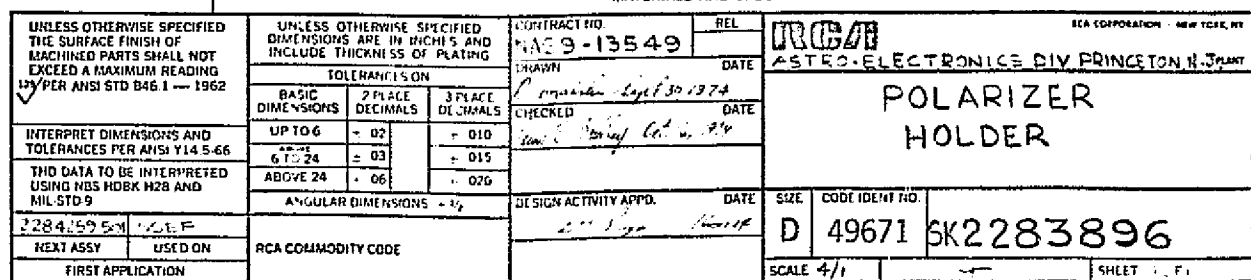 UNLESS OTHERWISE SPECIFIED
THE SURFACE FINISH OF
MACHINED PARTS SHALL NOT
EXCEED A MAXIMUM READING
PER ANSI STD B46.1 — 1962
INTERPRET DIMENSIONS AND
TOLERANCES PER ANSI Y14.5-66
THD DATA TO BE INTERPRETED
USING NBS HDBK H28 AND
MIL-STD-9
NEXT ASSY USED ON
FIRST APPLICATION
UNLESS OTHERWISE SPECIFIED
DIMENSIONS ARE IN INCHES AND
INCLUDE THICKNESS OF PLATING
TOLERANCES ON
BASIC DIMENSIONS 2 PLACE DECIMALS 3 PLACE DECIMALS
UP TO 6 ± 02 ± 010
ABOVE 6 TO 24 ± 03 ± 015
ABOVE 24 ± 06 ± 020
ANGULAR DIMENSIONS ± ½
RCA COMMODITY CODE
CONTRACT NO. REL
NAS 9-13549
DRAWN DATE
Sept 30 1974
CHECKED DATE
DESIGN ACTIVITY APPD. DATE
RCA RCA CORPORATION - NEW YORK, NY
ASTRO-ELECTRONICS DIV PRINCETON N.J. PLANT
POLARIZER
HOLDER
SIZE CODE IDENT NO.
D 49671 SK2283896
SCALE 4/1 SHEET